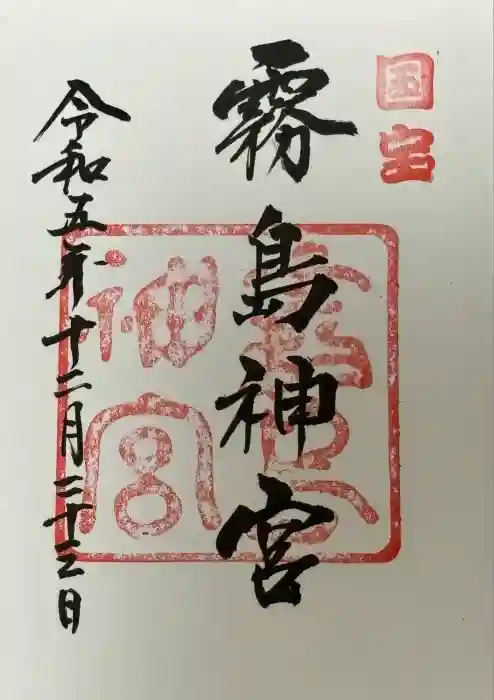 国宝
霧島神宮
霧島神宮
令和五年十二月二十三日